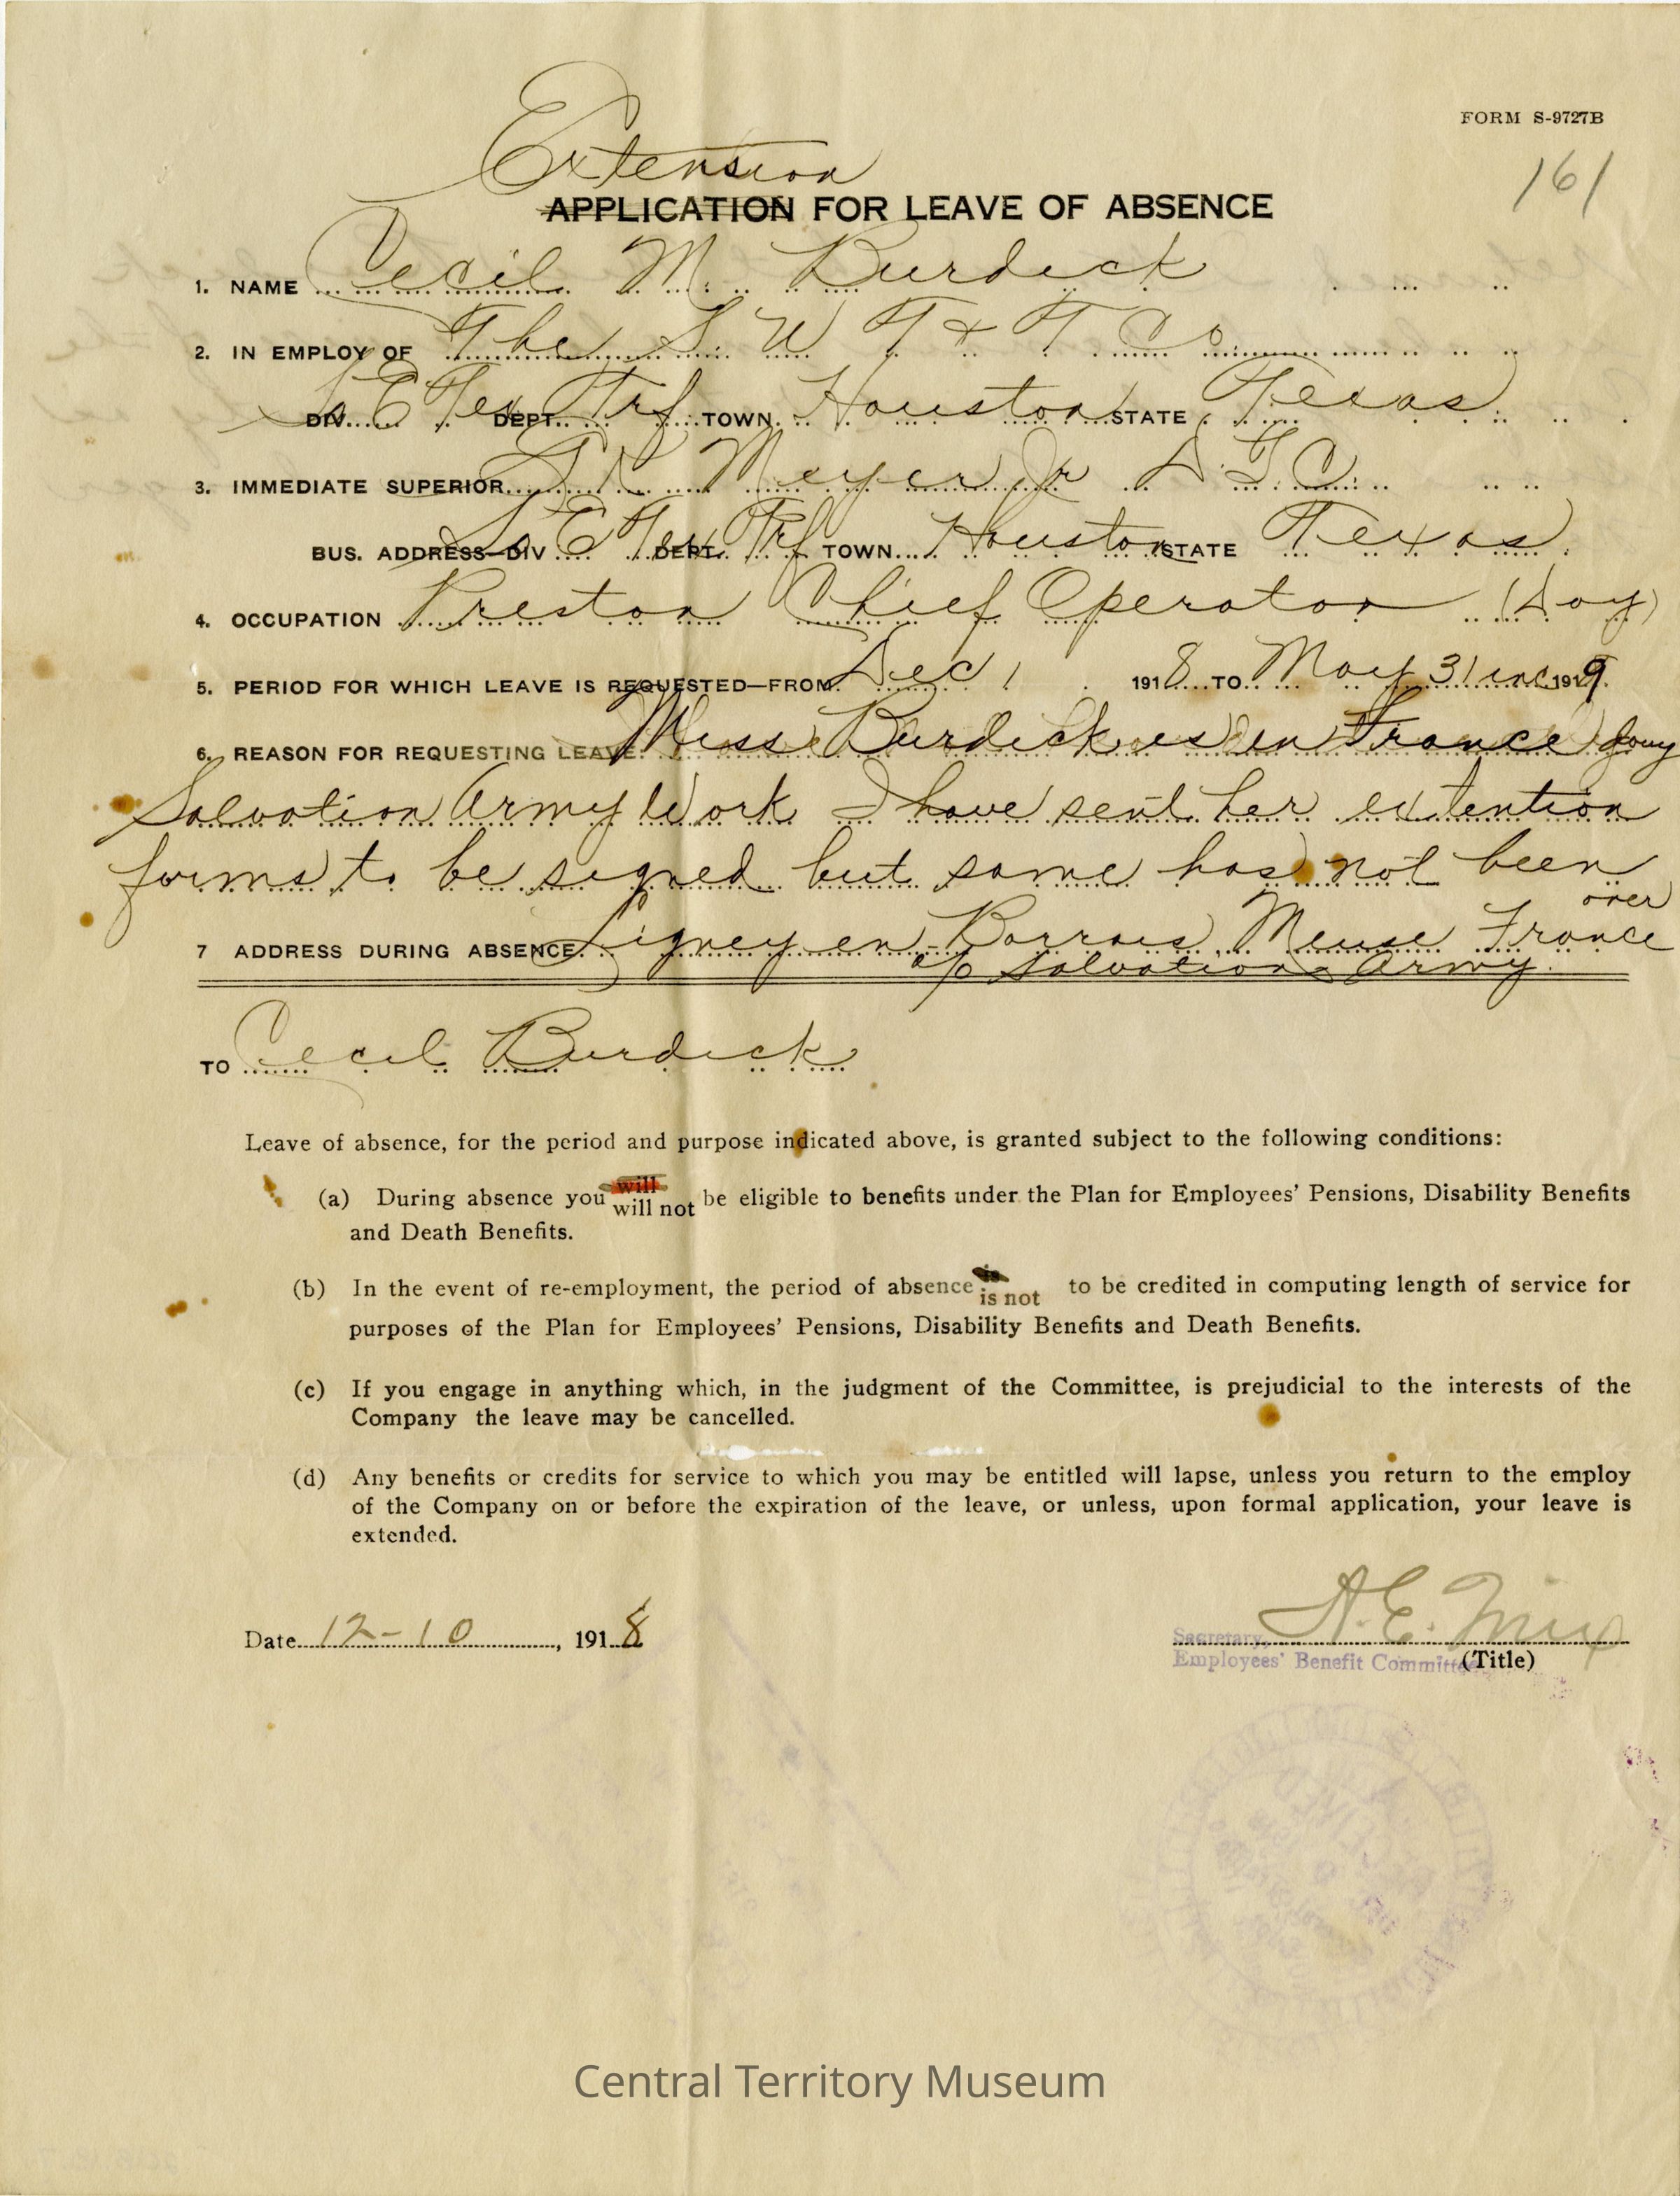 FORM S-9727B
161
Extension
APPLICATION FOR LEAVE OF ABSENCE
1. NAME Cecil M. Burdick
2. IN EMPLOY OF The S. W T & T Co
DIV. So E Tex DEPT. Trf TOWN Houston STATE Texas
3. IMMEDIATE SUPERIOR Meyer Jr D.T.C.
BUS. ADDRESS—DIV So E Tex DEPT. Trf TOWN Houston STATE Texas
4. OCCUPATION Preston Chief Operator (Day)
5. PERIOD FOR WHICH LEAVE IS REQUESTED—FROM Dec 1 1918 TO May 31 inc 1919
6. REASON FOR REQUESTING LEAVE Miss Burdick is in France doing
Salvation Army Work I have sent her extention
forms to be signed but same has not been
over
7 ADDRESS DURING ABSENCE Ligney en-Barrois, Meuse France
c/o Salvation Army.
TO Cecil Burdick
Leave of absence, for the period and purpose indicated above, is granted subject to the following conditions:
(a) During absence you will will not be eligible to benefits under the Plan for Employees' Pensions, Disability Benefits
and Death Benefits.
(b) In the event of re-employment, the period of absence is is not to be credited in computing length of service for
purposes of the Plan for Employees' Pensions, Disability Benefits and Death Benefits.
(c) If you engage in anything which, in the judgment of the Committee, is prejudicial to the interests of the
Company the leave may be cancelled.
(d) Any benefits or credits for service to which you may be entitled will lapse, unless you return to the employ
of the Company on or before the expiration of the leave, or unless, upon formal application, your leave is
extended.
Date 12-10, 1918
A. E. Mix
Secretary,
Employees' Benefit Committee (Title)
Central Territory Museum